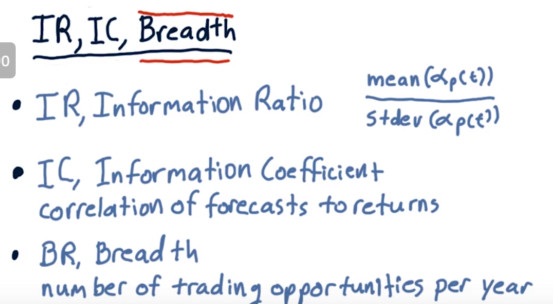 IR, IC, Breadth
0
• IR, Information Ratio
mean(αp(t))
stdev(αp(t))
• IC, Information Coefficient
correlation of forecasts to returns
• BR, Breadth
number of trading opportunities per year